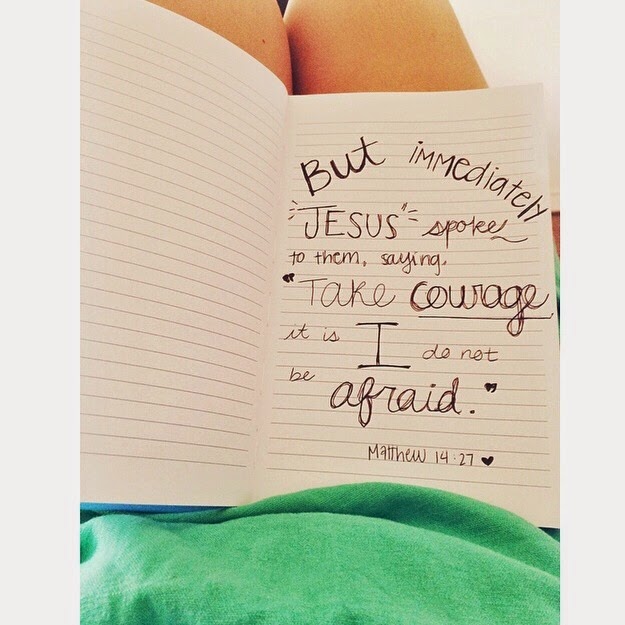 But immediately
"JESUS" spoke
to them, saying,
"Take courage
it is I do not
be
afraid."
Matthew 14:27